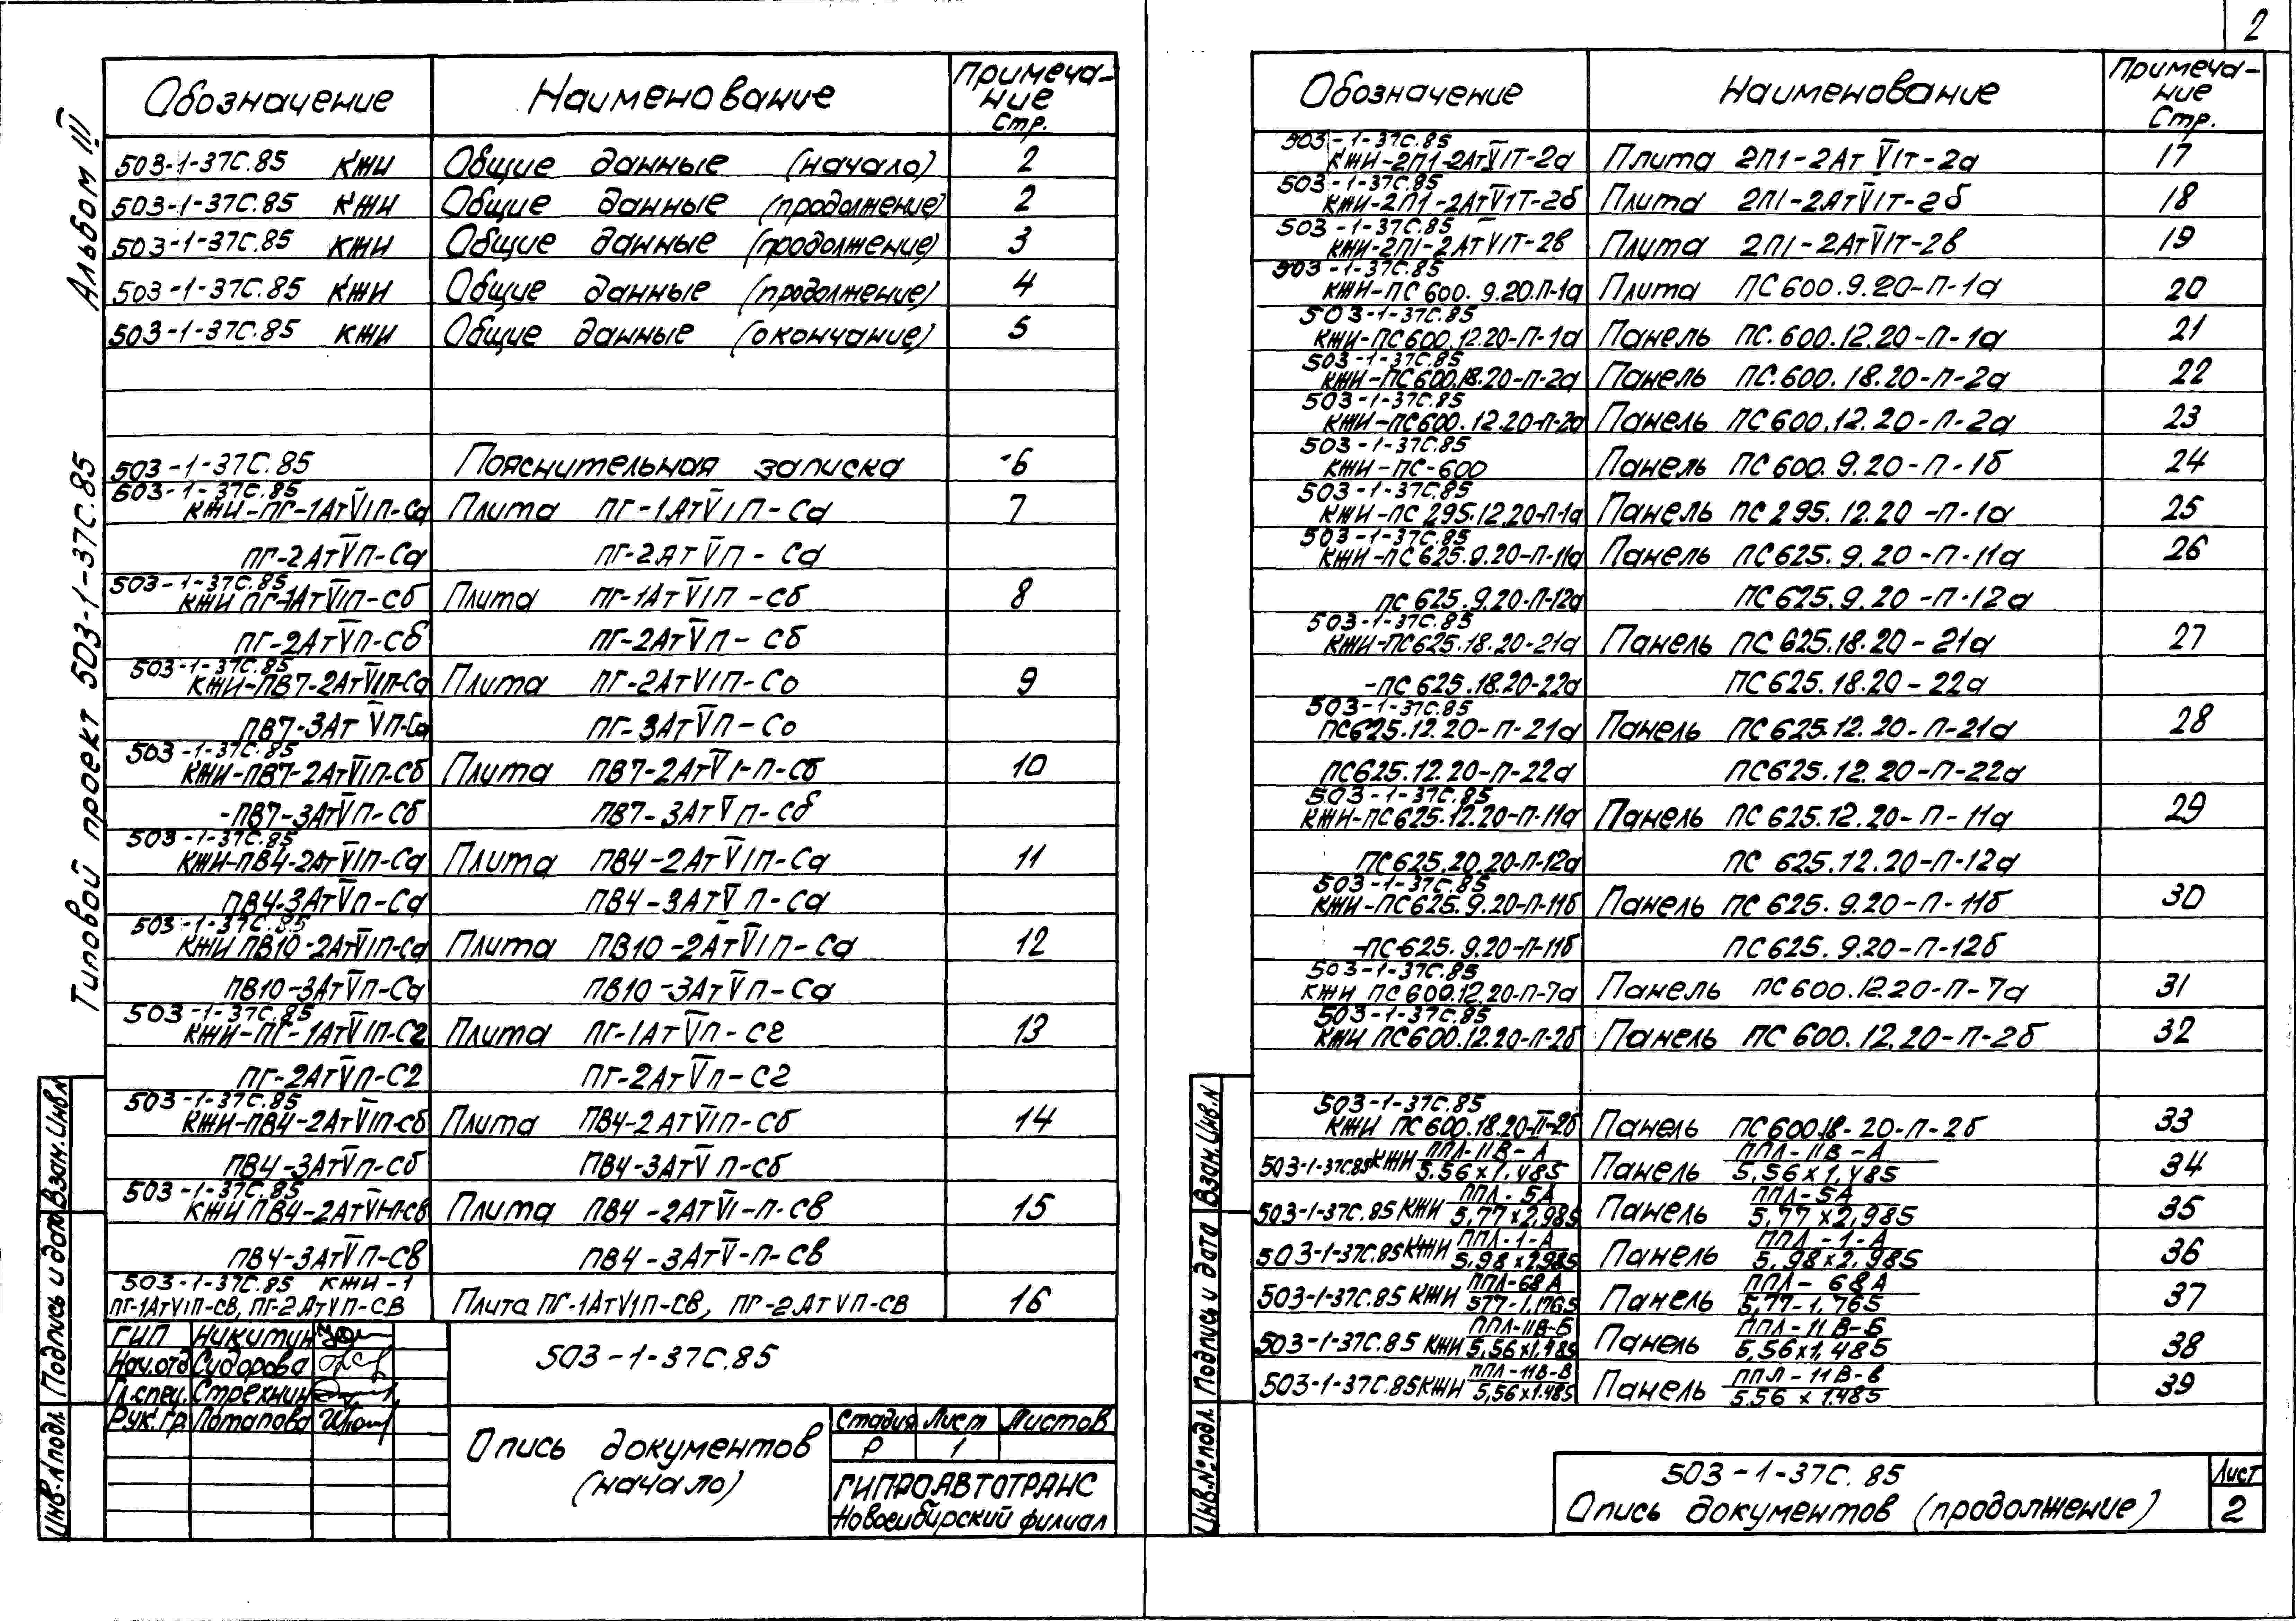 2
Альбом III
Типовой проект 503-1-37С.85
Обозначение Наименование Примеча-
ние
Стр.
503-1-37С.85 КЖИ Общие данные (начало) 2
503-1-37С.85 КЖИ Общие данные (продолжение) 2
503-1-37С.85 КЖИ Общие данные (продолжение) 3
503-1-37С.85 КЖИ Общие данные (продолжение) 4
503-1-37С.85 КЖИ Общие данные (окончание) 5
503-1-37С.85 Пояснительная записка 6
503-1-37С.85
КЖИ-ПГ-1АтVIП-Са Плита ПГ-1АтVIП-Са 7
ПГ-2АтVП-Са ПГ-2АтVП-Са
503-1-37С.85
КЖИ ПГ-1АтVIП-Сб Плита ПГ-1АтVIП-Сб 8
ПГ-2АтVП-Сб ПГ-2АтVП-Сб
503-1-37С.85
КЖИ-ПВ7-2АтVIП-Са Плита ПГ-2АтVIП-Со 9
ПВ7-3АтVП-Са ПГ-3АтVП-Со
503-1-37С.85
КЖИ-ПВ7-2АтVIП-Сб Плита ПВ7-2АтVI-П-Сб 10
-ПВ7-3АтVП-Сб ПВ7-3АтVП-Сб
503-1-37С.85
КЖИ-ПВ4-2АтVIП-Са Плита ПВ4-2АтVIП-Са 11
ПВ4-3АтVП-Са ПВ4-3АтVП-Са
503-1-37С.85
КЖИ ПВ10-2АтVIП-Са Плита ПВ10-2АтVIП-Са 12
ПВ10-3АтVП-Са ПВ10-3АтVП-Са
503-1-37С.85
КЖИ-ПГ-1АтVIП-С2 Плита ПГ-1АтVП-С2 13
ПГ-2АтVП-С2 ПГ-2АтVП-С2
503-1-37С.85
КЖИ-ПВ4-2АтVIП-сб Плита ПВ4-2АтVIП-Сб 14
ПВ4-3АтVП-Сб ПВ4-3АтVП-сб
503-1-37С.85
КЖИ ПВ4-2АтVI-П-Св Плита ПВ4-2АТVI-П-Св 15
ПВ4-3АтVП-Св ПВ4-3АтV-П-Св
503-1-37С.85 КЖИ-1
ПГ-1АтVIП-СВ, ПГ-2АтVП-СВ Плита ПГ-1АтVIП-СВ, ПГ-2АтVП-СВ 16
ГИП Никитин
Нач.отд Сидорова
Гл.спец. Стрехнин
Рук.гр. Потапова
503-1-37С.85
Опись документов
(начало)
Стадия Лист Листов
Р 1
ГИПРОАВТОТРАНС
Новосибирский филиал
Взам.Инв.N
Подпись и дата
Инв.N подл
Обозначение Наименование Примеча-
ние
Стр.
503-1-37С.85
КЖИ-2П1-2АтVIТ-2а Плита 2П1-2АтVIТ-2а 17
503-1-37С.85
КЖИ-2П1-2АтVIТ-2б Плита 2П1-2АтVIТ-2б 18
503-1-37С.85
КЖИ-2П1-2АтVIТ-2в Плита 2П1-2АтVIТ-2в 19
503-1-37С.85
КЖИ-ПС600.9.20.П-1а Плита ПС600.9.20-П-1а 20
503-1-37С.85
КЖИ-ПС600.12.20-П-1а Панель ПС.600.12.20-П-1а 21
503-1-37С.85
КЖИ-ПС600.18.20-П-2а Панель ПС.600.18.20-П-2а 22
503-1-37С.85
КЖИ-ПС600.12.20-П-2а Панель ПС600.12.20-П-2а 23
503-1-37С.85
КЖИ-ПС-600 Панель ПС600.9.20-П-1б 24
503-1-37С.85
КЖИ-ПС295.12.20-П-1а Панель ПС295.12.20-П-1а 25
503-1-37С.85
КЖИ-ПС625.9.20-П-11а Панель ПС625.9.20-П-11а 26
ПС625.9.20-П-12а ПС625.9.20-П-12а
503-1-37С.85
КЖИ-ПС625.18.20-21а Панель ПС625.18.20-21а 27
-ПС625.18.20-22а ПС625.18.20-22а
503-1-37С.85
ПС625.12.20-П-21а Панель ПС625.12.20-П-21а 28
ПС625.12.20-П-22а ПС625.12.20-П-22а
503-1-37С.85
КЖИ-ПС625.12.20-П-11а Панель ПС625.12.20-П-11а 29
ПС625.20.20-П-12а ПС 625.12.20-П-12а
503-1-37С.85
КЖИ-ПС625.9.20-П-11б Панель ПС625.9.20-П-11б 30
-ПС-625.9.20-П-11б ПС625.9.20-П-12б
503-1-37С.85
КЖИ ПС600.12.20-П-7а Панель ПС600.12.20-П-7а 31
503-1-37С.85
КЖИ ПС600.12.20-П-2б Панель ПС600.12.20-П-2б 32
503-1-37С.85
КЖИ ПС600.18.20-П-2б Панель ПС600.18-20-П-2б 33
503-1-37С.85 КЖИ ППЛ-11В-А Панель ППЛ-11В-А 34
5.56х1.485 5,56х1,485
503-1-37С.85 КЖИ ППЛ-5А Панель ППЛ-5А 35
5,77х2,985 5,77х2,985
503-1-37С.85 КЖИ ППЛ-1-А Панель ППЛ-1-А 36
5,98х2,985 5,98х2,985
503-1-37С.85 КЖИ ППЛ-68А Панель ППЛ-68А 37
577-1,1765 5,77-1,765
503-1-37С.85 КЖИ ППЛ-11В-Б Панель ППЛ-11В-Б 38
5,56х1,485 5,56х1,485
503-1-37С.85 КЖИ ППЛ-11В-В Панель ППЛ-11В-В 39
5,56х1.485 5.56х1.485
Взам.Инв.N
Подпись и дата
Инв.№ подл.
503-1-37С.85
Опись документов (продолжение)
Лист
2